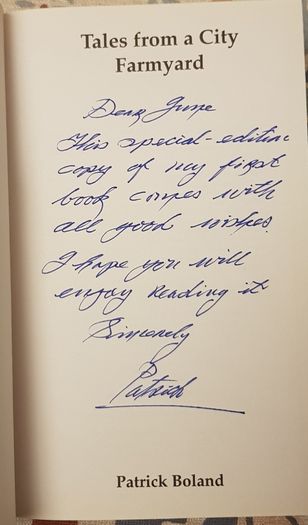 Tales from a City
Farmyard
Dear June
This special-edition
copy of my first
book comes with
all good wishes.
I hope you will
enjoy reading it
Sincerely
Patrick
Patrick Boland